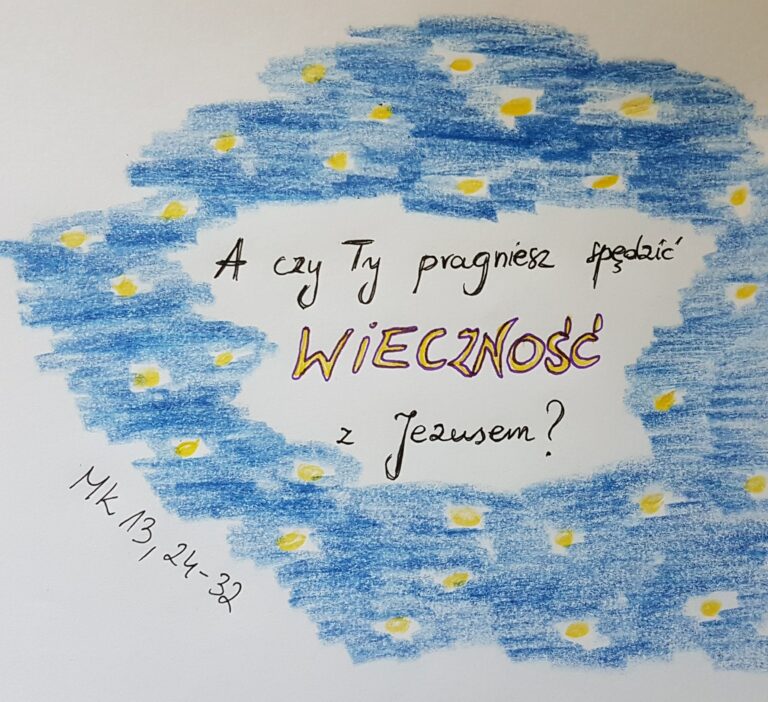 A czy Ty pragniesz spędzić
WIECZNOŚĆ
z Jezusem?
MK 13, 24-32